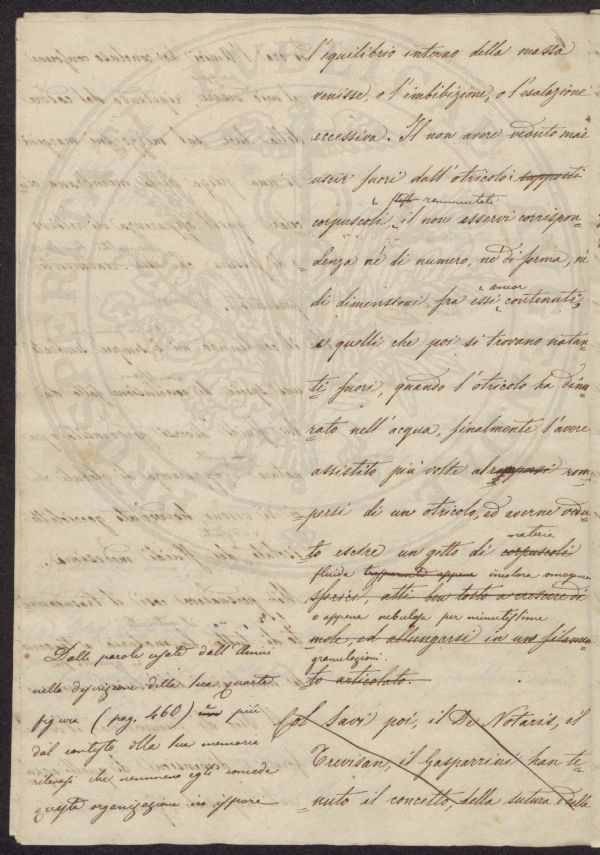 l'equilibrio interno della massa
venisse, o l'imbibizione, o l'esalazione
eccessiva. Il non avere veduto mai
uscir fuori dall'otricolo i supposti
rammentati
corpuscoli, il non esservi corrispon-
denza nè di numero, nè di forma, nè
di dimensioni, fra essi ancor contenuti,
e quelli che poi si trovano natan-
ti fuori, quando l'otricolo ha dimo-
rato nell'acqua, finalmente l'avere
assistito più volte al rom-
persi di un otricolo, ed averne vedu-
materia
to escire un getto di corpuscoli
fluida trasparente appena incolora omogenea
sferici, atti ben tosto a crescere di
o appena nebulosa per minutissime
mole, ed allungarsi in un filamen-
granulazioni.
to articolato.
Col Savi poi, il De Notaris, il
Trevisan, il Gasparrini han te-
nuto il concetto, della natura delle
Dalle parole usate dall'Amici
nella descrizione della sua quarta
figura (pag. 460) più
dal contesto della sua memoria
rilevasi che nemmeno egli concede
questa organizazione in